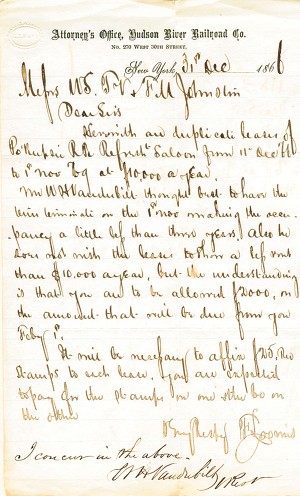 Attorney's Office, Hudson River Railroad Co.
No. 270 West 30th Street.
New York, 31st Dec 1866
Messrs W.S. & F.M. Johnston
Dear Sirs
Herewith are duplicate leases of
Po'Keepsie R.R. Refresht Saloon from 1st Decr 66
to 1st Nov '69 at $10,000 a year.
Mr W.H. Vanderbilt thought best to have the
term terminate on the 1st Nov making the occu-
pancy a little less than three years, also he
does not wish the leases to show a less rent
than $10,000 a year, but the understanding
is that you are to be allowed $2000, on
the amount that will be due from you
Feby 1st.
It will be necessary to affix $25, Rev
Stamps to each lease, you are expected
to pay for the stamps on one & the Co on
the other
Loomis
I concur in the above.
W H Vanderbilt